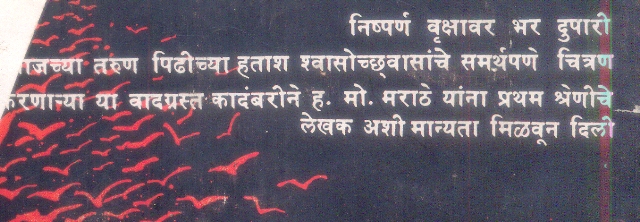 निष्पर्ण वृक्षावर भर दुपारी
तरुण पिढीच्या हताश श्वासोच्छ्वासांचे समर्थपणे चित्रण
या वादग्रस्त कादंबरीने ह. मो. मराठे यांना प्रथम श्रेणीचे
लेखक अशी मान्यता मिळवून दिली